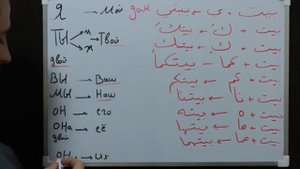 Я → Мой дом بيت + ي = بيتي
Ты м ж → Твой بيت + كَ = بيتكَ
بيت + كِ = بيتكِ
двой بيت + كما = بيتكما
Вы → Ваш بيت + كم = بيتكم
Мы → Наш بيت + نا = بيتنا
Он → его بيت + ه = بيته
Она → её بيت + ها = بيتها
двой بيت + هما = بيتهما
Они → их